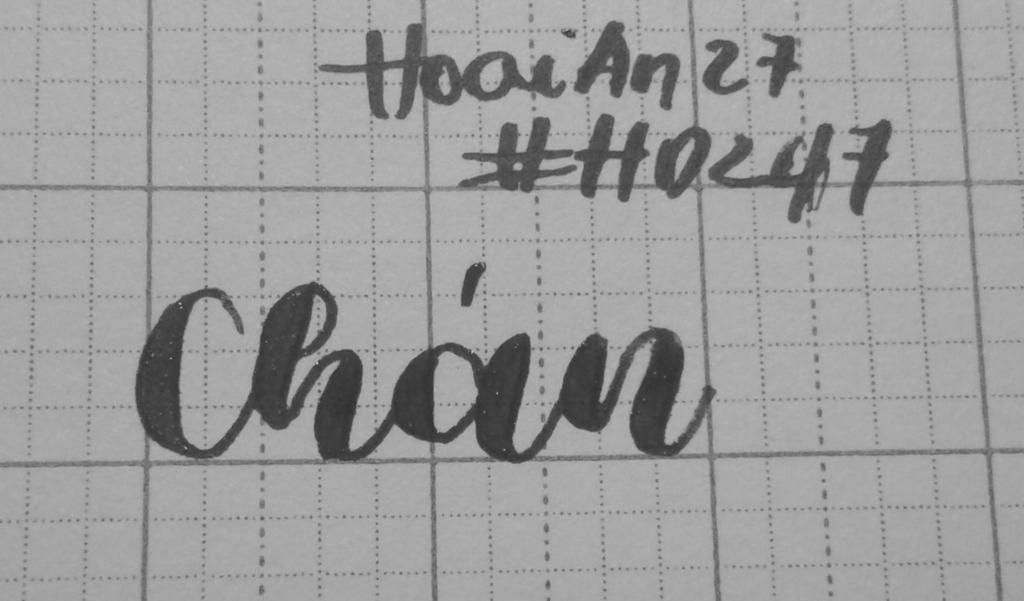 HoaiAn 27
#H0247
Chán